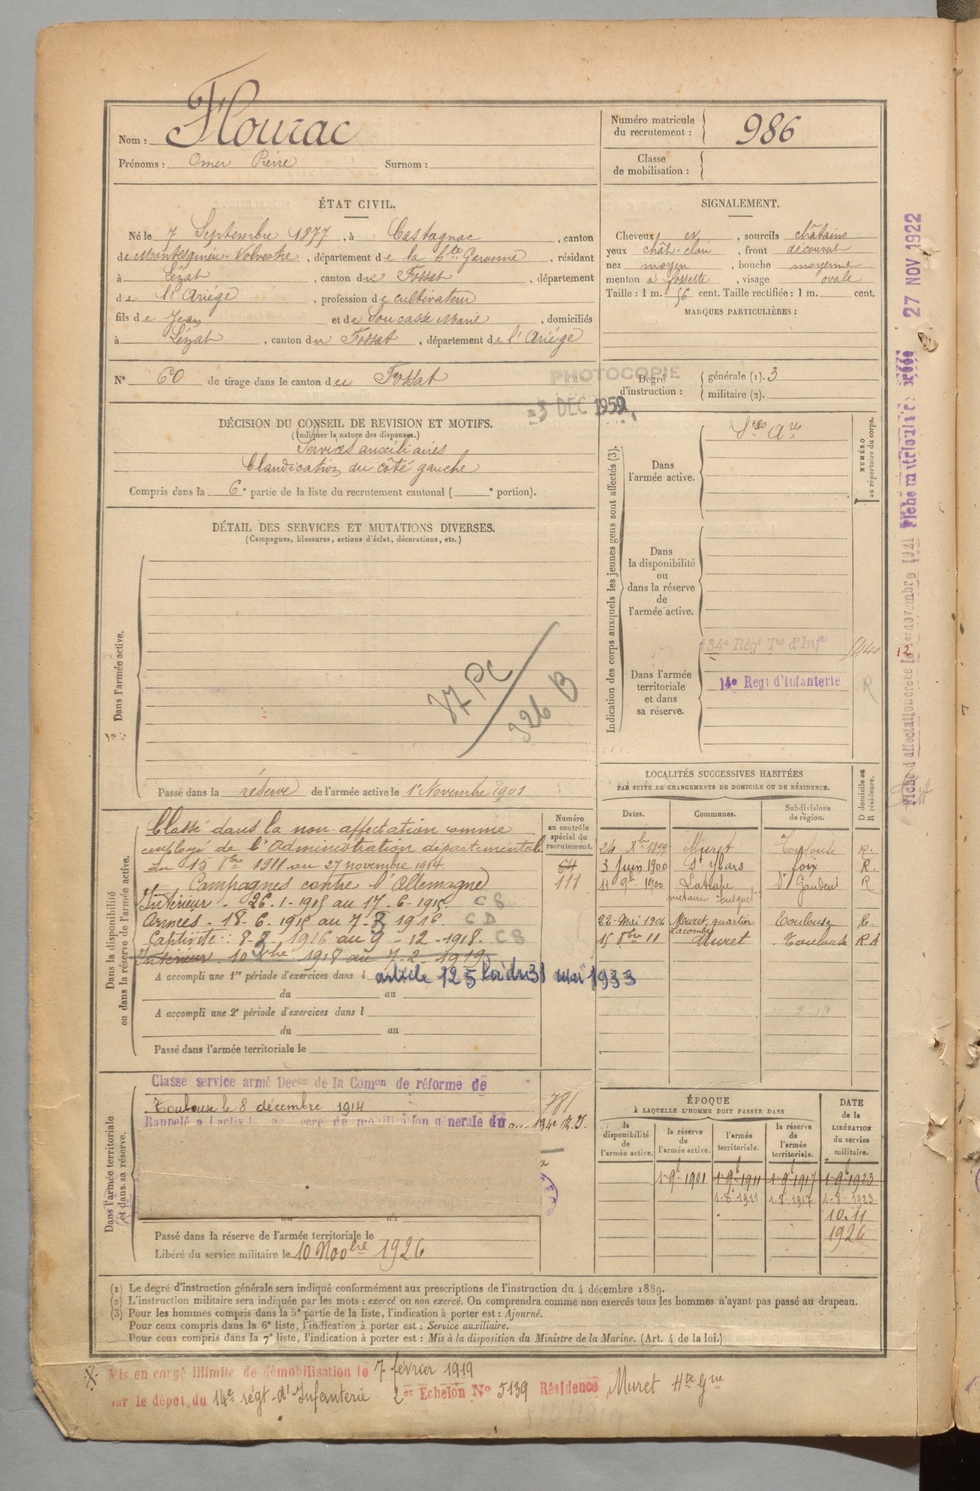 Nom : Flourac
Prénoms : Omer Pierre Surnom :
Numéro matricule du recrutement : 986
Classe de mobilisation :
ÉTAT CIVIL.
Né le 7 Septembre 1877, à Castagnac, canton
de Montesquieu-Volvestre, département de la Hte Garonne, résidant
à Lézat, canton du Fossat, département
de l'Ariège, profession de cultivateur
fils de Jean et de Soucasse Marie, domiciliés
à Lézat, canton du Fossat, département de l'Ariège
N° 60 de tirage dans le canton du Fossat
SIGNALEMENT.
Cheveux et, sourcils châtains
yeux chât-clair, front découvert
nez moyen, bouche moyenne
menton à fossette, visage ovale
Taille : 1 m. 56 cent. Taille rectifiée : 1 m. cent.
MARQUES PARTICULIÈRES :
PHOTOCOPIE
-3 DEC 1959
Degré d'instruction : générale (1). 3
militaire (2).
DÉCISION DU CONSEIL DE REVISION ET MOTIFS.
(Indiquer la nature des dispenses.)
Services auxiliaires
Claudication du côté gauche
Compris dans la 6e partie de la liste du recrutement cantonal ( e portion).
DÉTAIL DES SERVICES ET MUTATIONS DIVERSES.
(Campagnes, blessures, actions d'éclat, décorations, etc.)
Dans l'armée active.
87 PC
326 B
Passé dans la réserve de l'armée active le 1er Novembre 1901
Indication des corps auxquels les jeunes gens sont affectés (3).
NUMÉRO au répertoire du corps.
Dans l'armée active.
Dans la disponibilité ou dans la réserve de l'armée active.
Dans l'armée territoriale et dans sa réserve.
134e Régt Tal d'Infie
14e Régt d'Infanterie
R
Dans la disponibilité ou dans la réserve de l'armée active.
Classé dans la non affectation comme
employé de l'Administration départementale
du 15 8bre 1911 au 27 novembre 1914.
Campagnes contre l'Allemagne
Intérieur - 26-1-1915 au 17-6-1915 CS
Armées - 18-6-1915 au 7-8-1916 CD
Captivité : 8-8-1916 au 9-12-1918. CS
Intérieur 10 Xbre 1918 au 7-2-1919
A accompli une 1re période d'exercices dans l
article 125 Loi du 31 mai 1933
du au
A accompli une 2e période d'exercices dans l
du au
Passé dans l'armée territoriale le
Numéro au contrôle spécial du recrutement.
64
111
LOCALITÉS SUCCESSIVES HABITÉES
PAR SUITE DE CHANGEMENTS DE DOMICILE OU DE RÉSIDENCE.
Dates. Communes. Subdivisions de région. D domicile ou R résidence.
24 Xbre 1899 Muret Toulouse R.
3 Juin 1900 St Ybars Foix R.
11 9bre 1900 Latrape St Gaudens R
22 Mai 1904 Muret, quartier Lacombe Toulouse R.
15 8bre 11 Muret Toulouse RA
Dans l'armée territoriale et dans sa réserve.
Classé service armé Décon de la Comon de réforme de
Toulouse le 8 décembre 1914
Rappelé à l'activité
mobilisation générale du au 134e R.I.
781
Passé dans la réserve de l'armée territoriale le
Libéré du service militaire le 10 Novbre 1926
ÉPOQUE
À LAQUELLE L'HOMME DOIT PASSER DANS
la disponibilité de l'armée active. la réserve de l'armée active. l'armée territoriale. la réserve de l'armée territoriale. DATE de la LIBÉRATION du service militaire.
1-9b-1901 1-9b-1911 1-9b-1917 1-9b-1923
1-8-1911 1-8-1917 1-8-1923
10.11
1926
(1) Le degré d'instruction générale sera indiqué conformément aux prescriptions de l'instruction du 4 décembre 1889.
(2) L'instruction militaire sera indiquée par les mots : exercé ou non exercé. On comprendra comme non exercés tous les hommes n'ayant pas passé au drapeau.
(3) Pour les hommes compris dans la 5e partie de la liste, l'indication à porter est : Ajourné.
Pour ceux compris dans la 6e liste, l'indication à porter est : Service auxiliaire.
Pour ceux compris dans la 7e liste, l'indication à porter est : Mis à la disposition du Ministre de la Marine. (Art. 4 de la loi.)
Mis en congé illimité de démobilisation le 7 février 1919
par le dépôt du 14e régt d'Infanterie 2e Echelon N° 5139 Résidence Muret Hte Gne
27 NOV 1922